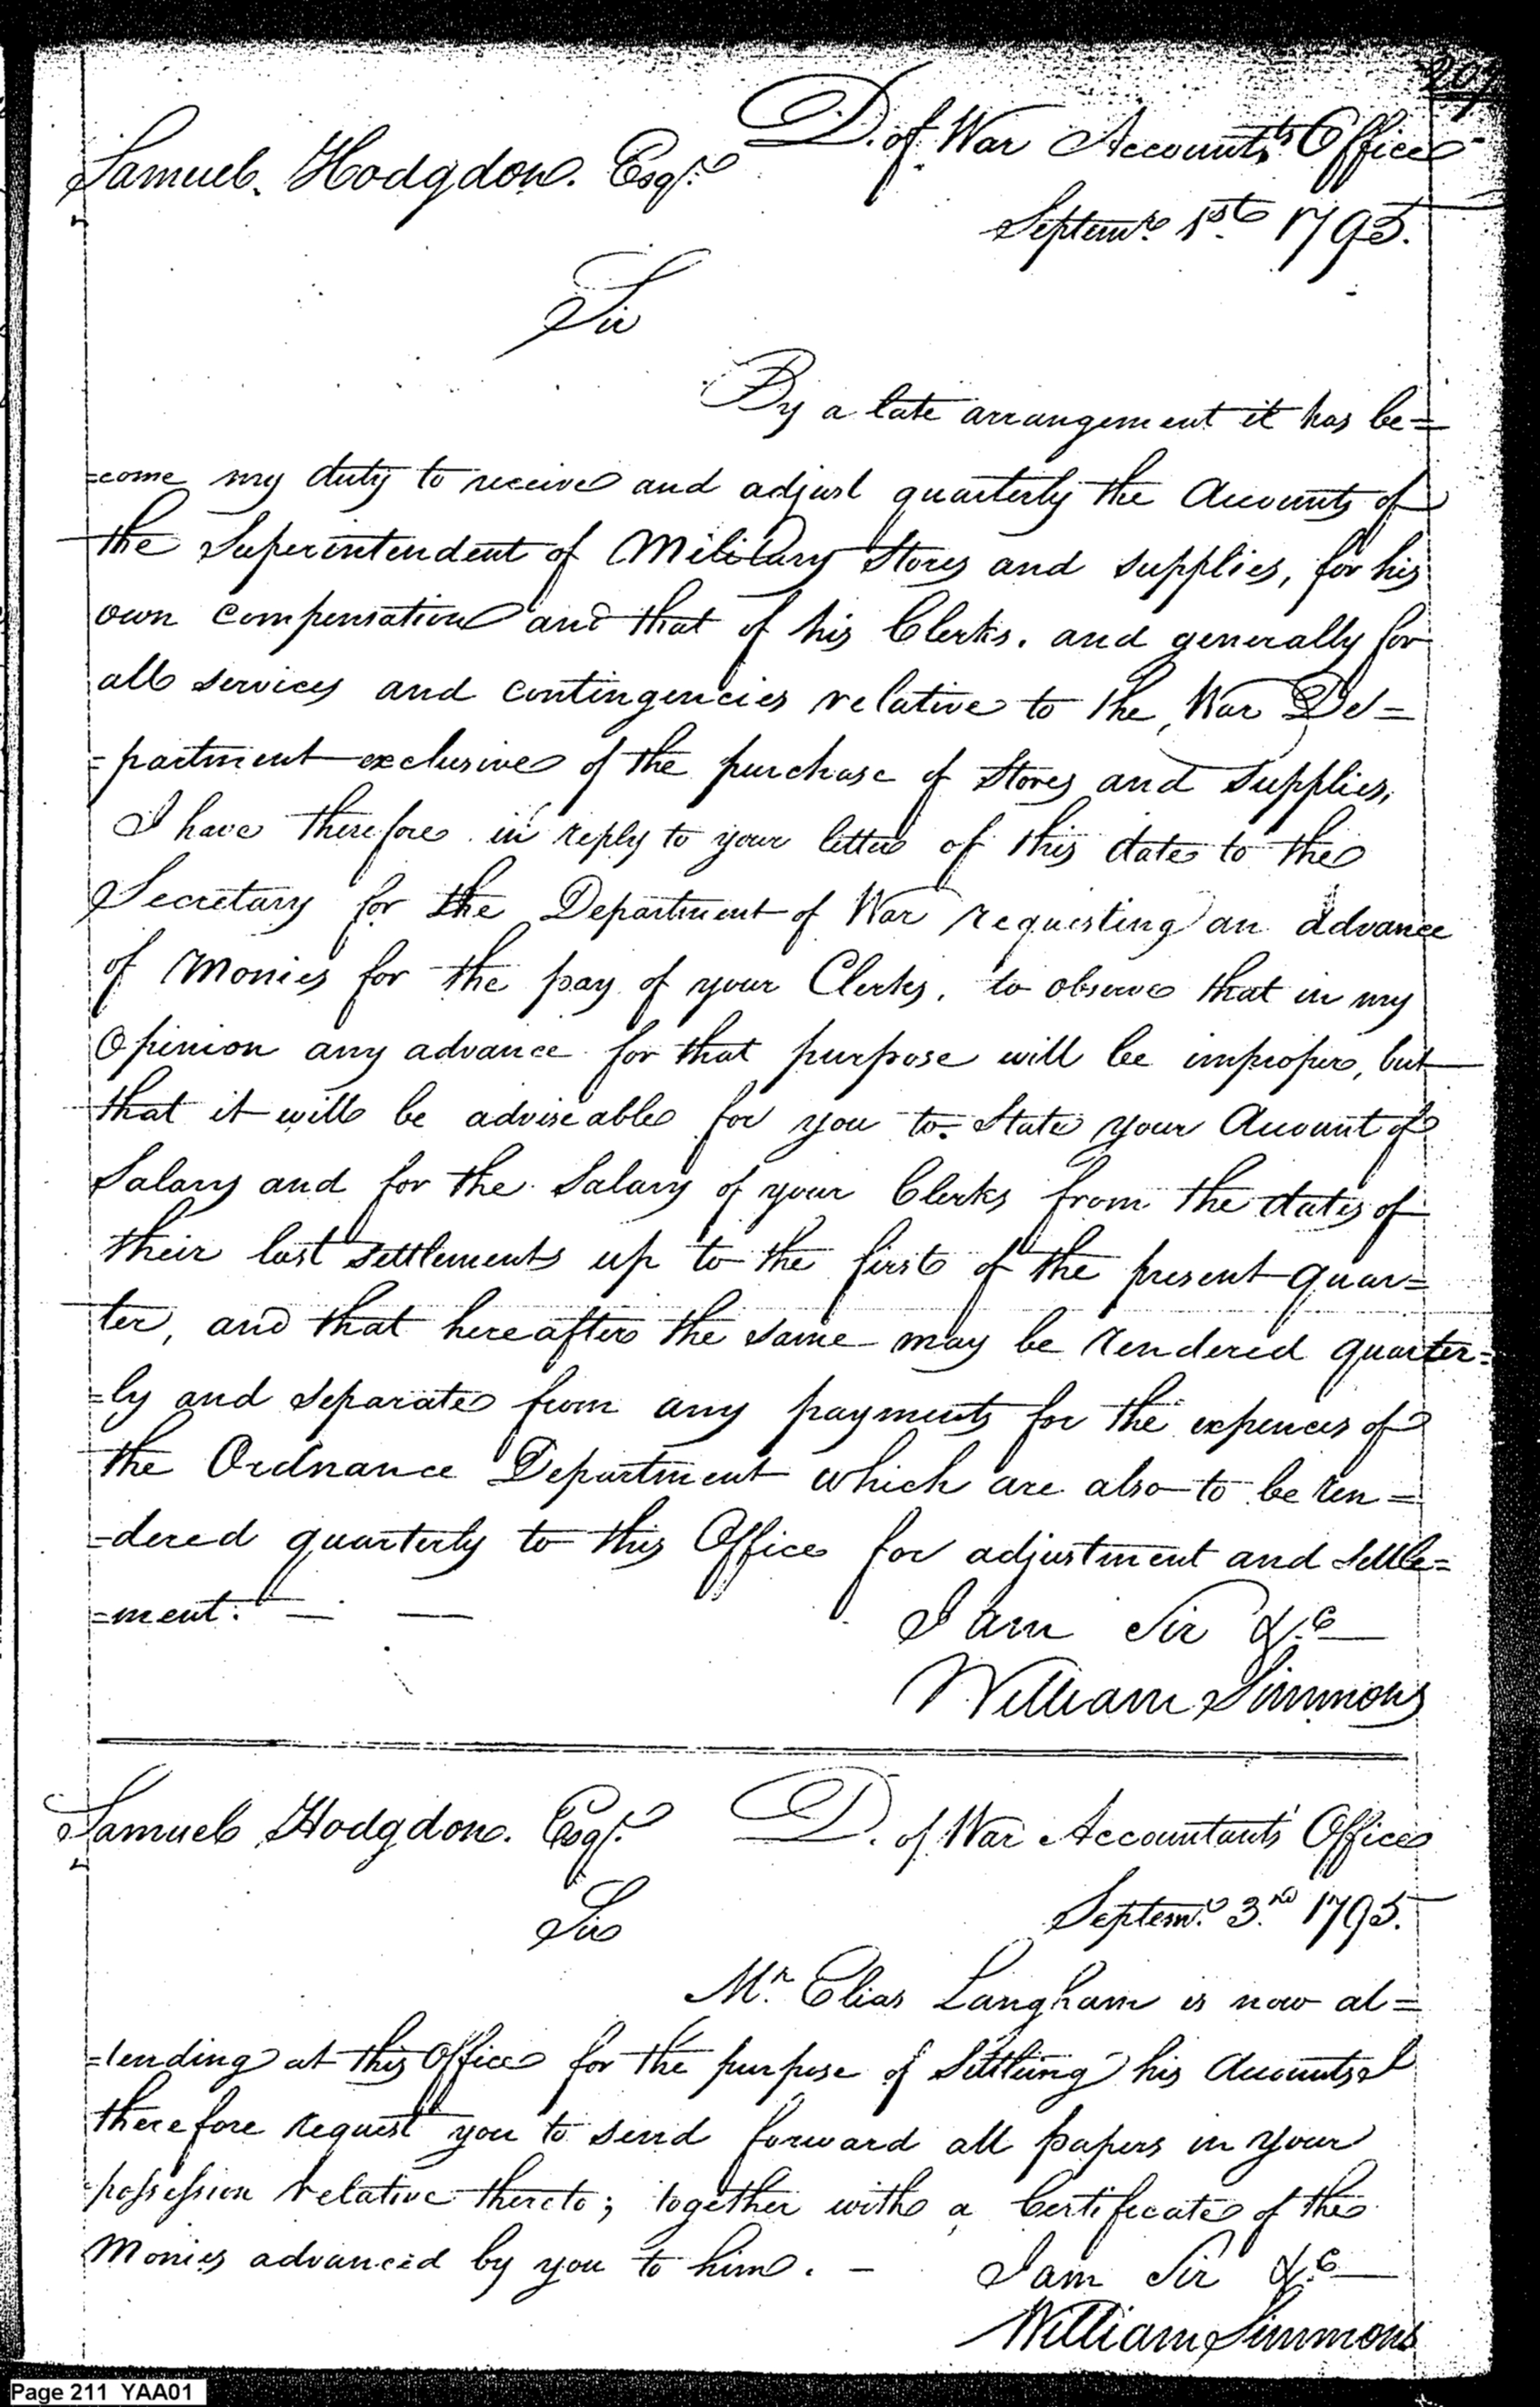 207
D. of War Accountts Office
Samuel Hodgdon. Esqr.
Septemr. 1st. 1795.
Sir
By a late arrangement it has be=
=come my duty to receive and adjust quarterly the Accounts of
the Superintendent of Military Stores and supplies, for his
own compensation and that of his Clerks. and generally for
all services and contingencies relative to the War De=
=partment exclusive of the purchase of Stores and Supplies,
I have therefore in reply to your letter of this date to the
Secretary for the Department of War requesting an advance
of Monies for the pay of your Clerks, to observe that in my
Opinion any advance for that purpose will be improper, but
that it will be adviseable for you to State your Account of
Salary and for the Salary of your Clerks from the dates of
their last settlements up to the first of the present quar=
ter, and that hereafter the same may be rendered quarter=
=ly and separate from any payments for the expences of
the Ordnance Department which are also to be ren=
=dered quarterly to this Office for adjustment and settle=
=ment. — —
I am Sir &c
William Simmons
Samuel Hodgdon. Esqr. D. of War Accountant's Office
Septemr. 3rd 1795.
Sir
Mr. Elias Langham is now at=
=tending at this Office for the purpose of Settling his Accounts I
therefore request you to send forward all papers in your
possession relative thereto; together with a Certificate of the
Monies advanced by you to him. — I am Sir &c
William Simmons
Page 211 YAA01